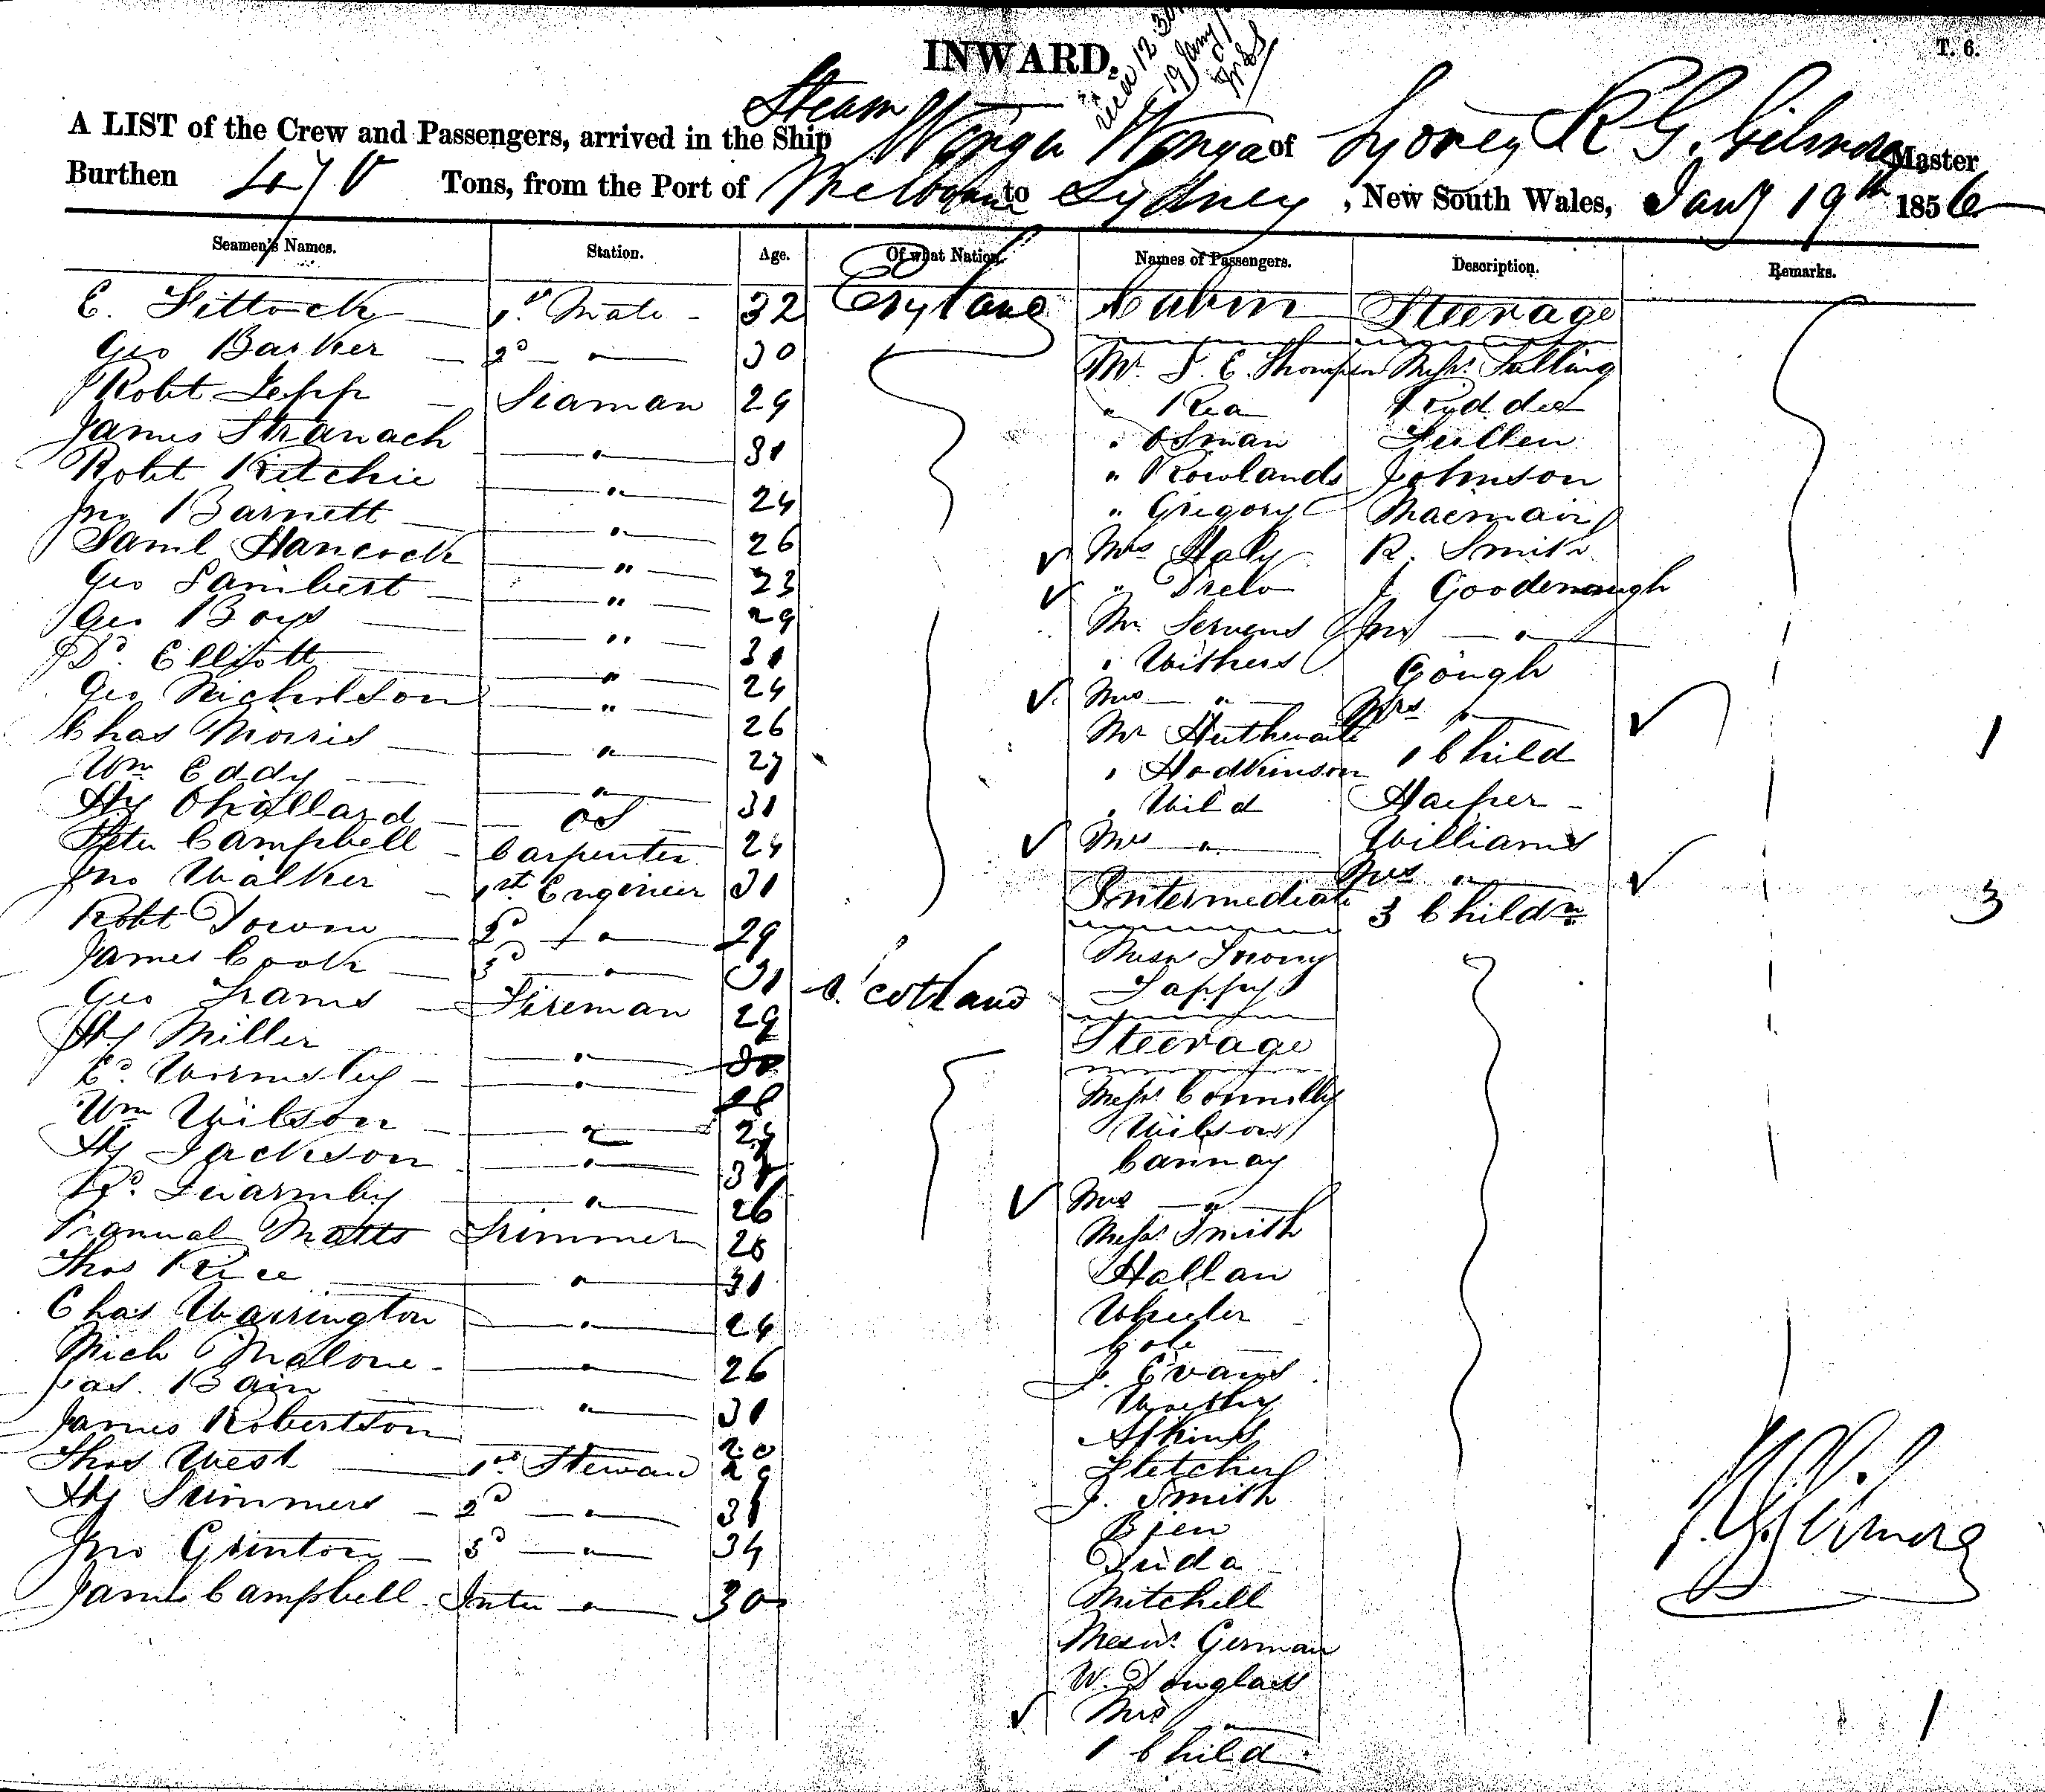 INWARD.
T. 6.
A LIST of the Crew and Passengers, arrived in the Ship Steam Wonga Wonga of Sydney R G. Gilmore Master
Burthen 470 Tons, from the Port of Melbourne to Sydney, New South Wales, Jany 19th 1856
Seamen's Names. Station. Age. Of what Nation. Names of Passengers. Description. Remarks.
E. Fittock 1st Mate 32 England
Geo Barker 2d " 30
Robt Jepp Seaman 29
James Stranach " 31
Robt Ritchie " 24
Jno Barnett " 26
Saml Hancock " 23
Geo Lambert " 29
Geo Boys " 31
Elliott " 24
Geo Nicholson " 26
Chas Morris " 27
Wm Eddy " 31
Hy Challard OS 24
Peter Campbell Carpenter 31
Jno Walker 1st Engineer 29
Robt Towns 2d " 31
James Cook 3d " 29 Scotland
Geo Frams Fireman
Hy Miller "
Ed. Wormsley "
Wm Wilson "
Hy Jackson "
Quarmby " 26
Matts Trimmer 28
Thos Rice " 31
Chas Warrington " 24
Mich Malone " 26
Jas. Bain " 31
James Robertson 20
Thos West 1st Steward 29
Hy Summers 2d " 31
Jno Grinton 3d " 34
Saml Campbell Inter " 30
Cabin
Mr. S. E. Thompson
" Rea
" Osman
" Rowlands
" Gregory
Mrs Haly
"
Mr. Servens
" Withers
Mrs "
Mr Huthwaite
" Hodkinson
" Wild
Mrs "
Intermediate
Messrs
Steerage
Messrs Connelly
Wilson
Cannay
Mrs "
Messrs Smith
Hallan
Wheeler
Cole
J. Evans
Worthy
Atkins
Fletcher
J. Smith
Bjen
Mitchell
Messrs. German
W. Douglass
Mrs "
1 Child 1
Steerage
Messrs. Salling
Fullen
Johnson
Macnair
R. Smith
J Goodenough
Jno "
Gough
Mrs "
1 Child 1
Harper
Williams
Mrs "
3 Childn 3
R G Gilmore